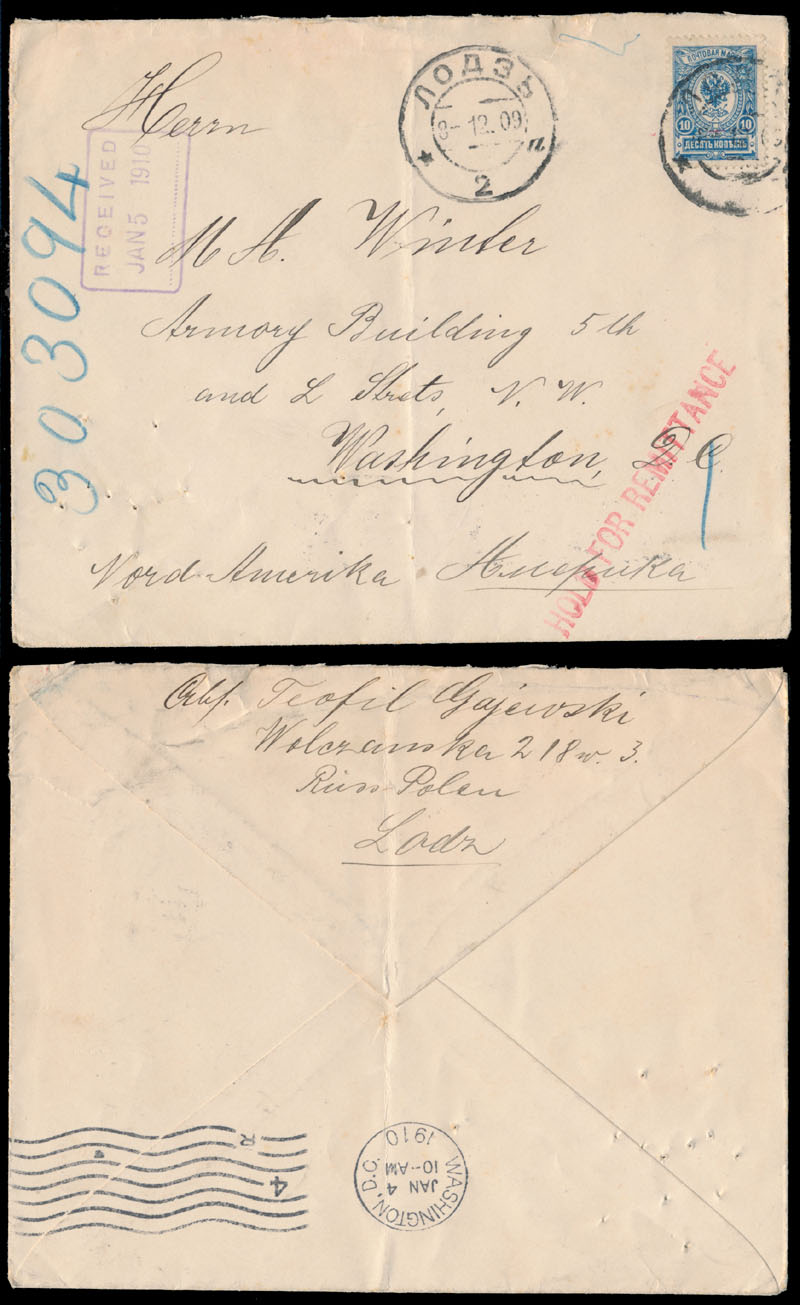 ПОЧТОВАЯ МАРКА
10 10
ДЕСЯТЬ КОПѢЕКЪ
ЛОДЗЬ
8-12.09
2
Herrn
RECEIVED
JAN 5 1910
303094
M A. Winter
Armory Building 5th
and L Strets, N. W.
Washington, D C
HOLD FOR REMITTANCE
Nord-Amerika Америка
Teofil Gajewski
Wolczanska 218 w. 3.
Russ Polen
Lodz
WASHINGTON, D.C.
JAN 4
10-AM
1910
4